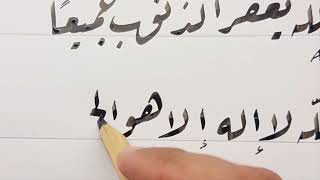 يغفر الذنوب جميعًا
لا إله إلا هو ا